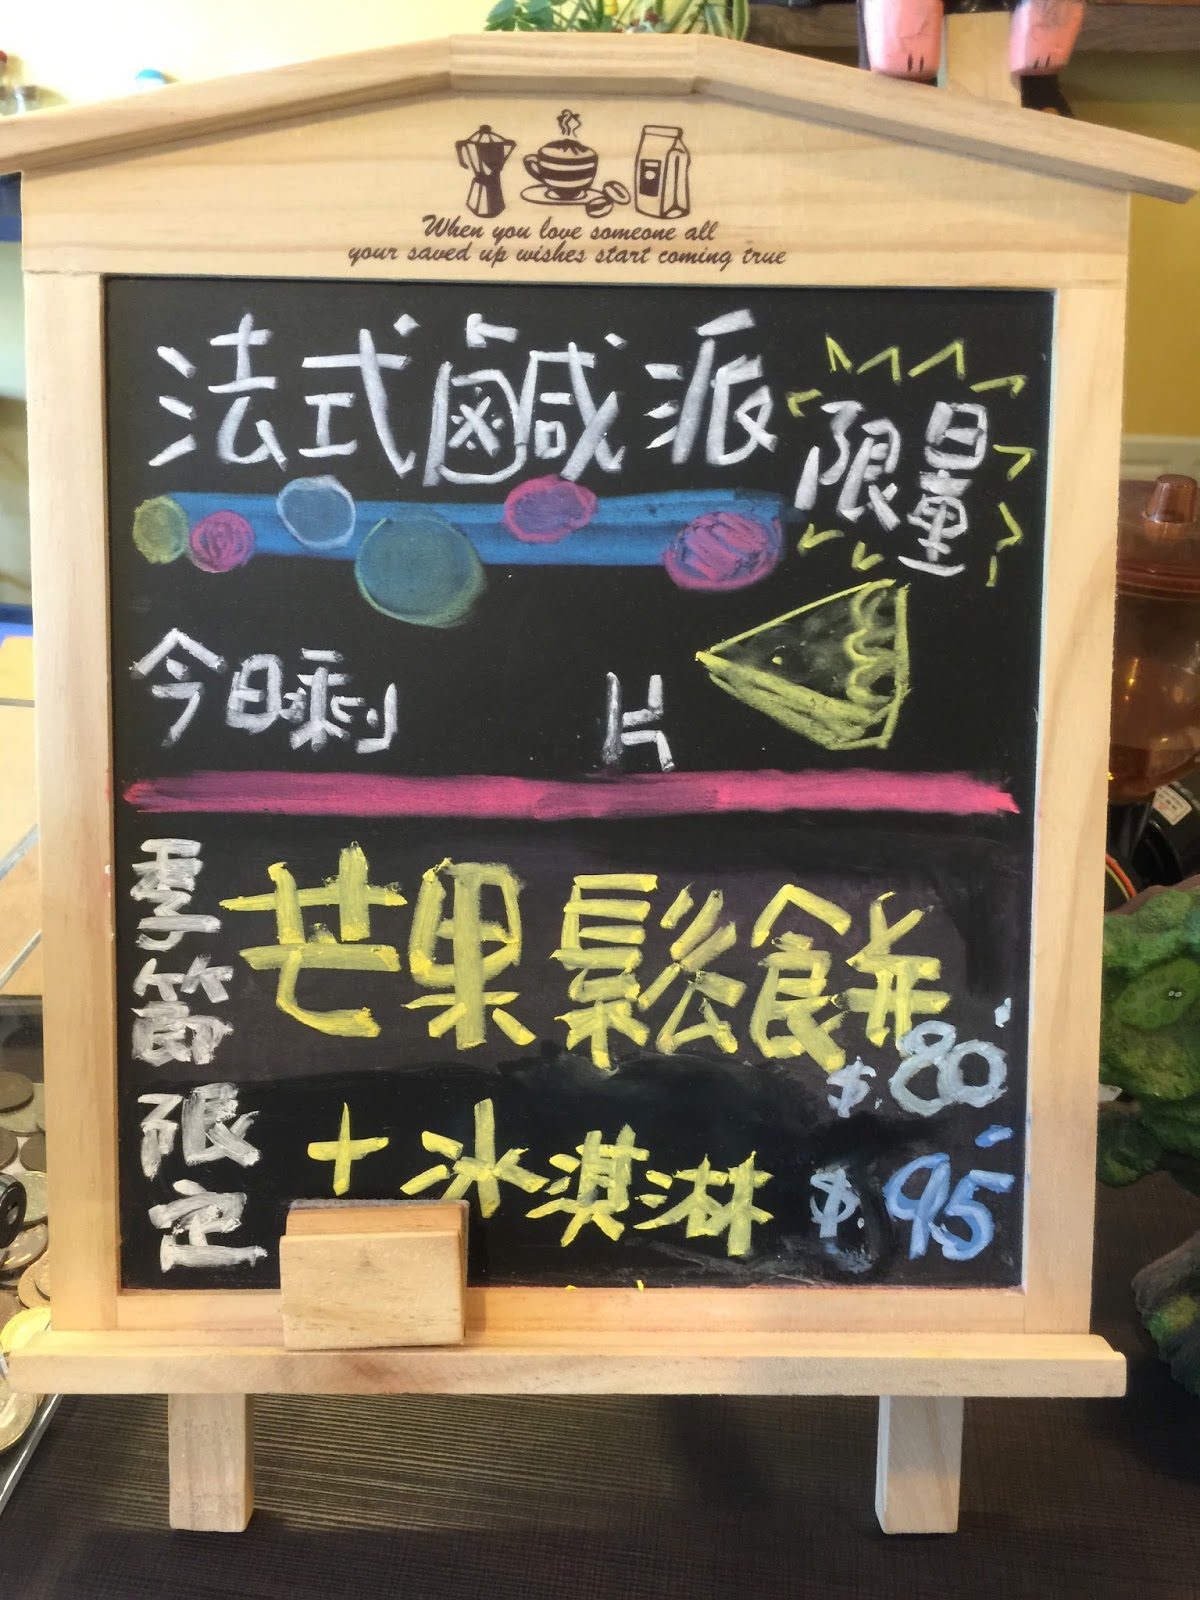 When you love someone all
your saved up wishes start coming true
法式鹹派
限量
今日剩 片
季節限定
芒果鬆餅
$.80
+冰淇淋 $.95